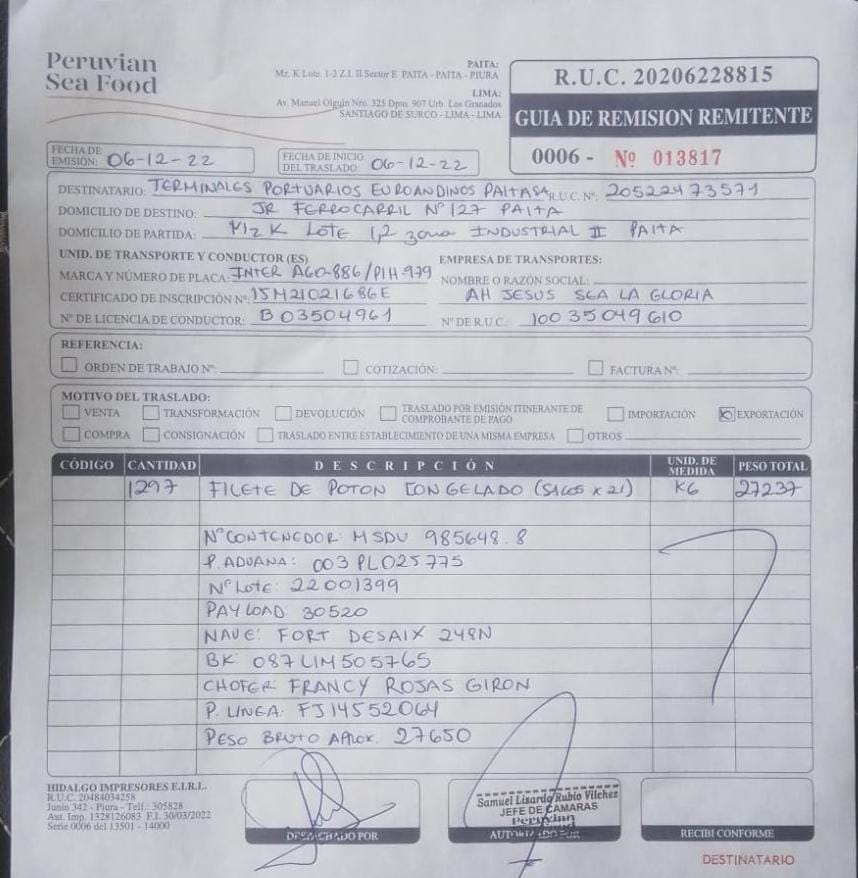 Peruvian
Sea Food
PAITA:
Mz. K Lote. 1-2 Z.I. II Sector E PAITA - PAITA - PIURA
LIMA:
Av. Manuel Olguin Nro. 325 Dpto. 907 Urb. Los Granados
SANTIAGO DE SURCO - LIMA - LIMA
R.U.C. 20206228815
GUIA DE REMISION REMITENTE
0006 - Nº 013817
FECHA DE EMISIÓN: 06-12-22
FECHA DE INICIO DEL TRASLADO: 06-12-22
DESTINATARIO: TERMINALES PORTUARIOS EUROANDINOS PAITA SA R.U.C. Nº: 20522473571
DOMICILIO DE DESTINO: JR FERROCARRIL Nº 127 PAITA
DOMICILIO DE PARTIDA: MZ K LOTE 1,2 zona INDUSTRIAL II PAITA
UNID. DE TRANSPORTE Y CONDUCTOR (ES)
MARCA Y NÚMERO DE PLACA: INTER AGO-886/PIH-979
CERTIFICADO DE INSCRIPCIÓN Nº: 15M21021686E
Nº DE LICENCIA DE CONDUCTOR: B03504961
EMPRESA DE TRANSPORTES:
NOMBRE O RAZÓN SOCIAL:
AH JESUS SEA LA GLORIA
Nº DE R.U.C.: 10035049610
REFERENCIA:
ORDEN DE TRABAJO Nº: COTIZACIÓN: FACTURA Nº:
MOTIVO DEL TRASLADO:
VENTA TRANSFORMACIÓN DEVOLUCIÓN TRASLADO POR EMISIÓN ITINERANTE DE COMPROBANTE DE PAGO IMPORTACIÓN EXPORTACIÓN
COMPRA CONSIGNACIÓN TRASLADO ENTRE ESTABLECIMIENTO DE UNA MISMA EMPRESA OTROS
CÓDIGO CANTIDAD DESCRIPCIÓN UNID. DE MEDIDA PESO TOTAL
1297 FILETE DE POTON CONGELADO (SACOS x 21) KG 27237
Nº CONTENEDOR: MSDU 985648.8
P. ADUANA: 003 PL025775
Nº Lote: 22001399
PAYLOAD: 30520
NAVE: FORT DESAIX 248N
BK: 087LIM505765
CHOFER FRANCY ROJAS GIRON
P. LINEA: FJ14552064
PESO BRUTO APROX. 27650
HIDALGO IMPRESORES E.I.R.L.
R.U.C. 20484034258
Junín 342 - Piura - Telf.: 305828
Aut. Imp. 1328126083 F.I. 30/03/2022
Serie 0006 del 13501 - 14000
DESPACHADO POR
Samuel Lisardo Rubio Vilchez
JEFE DE CAMARAS
Peruvian
AUTORIZADO POR
RECIBI CONFORME
DESTINATARIO